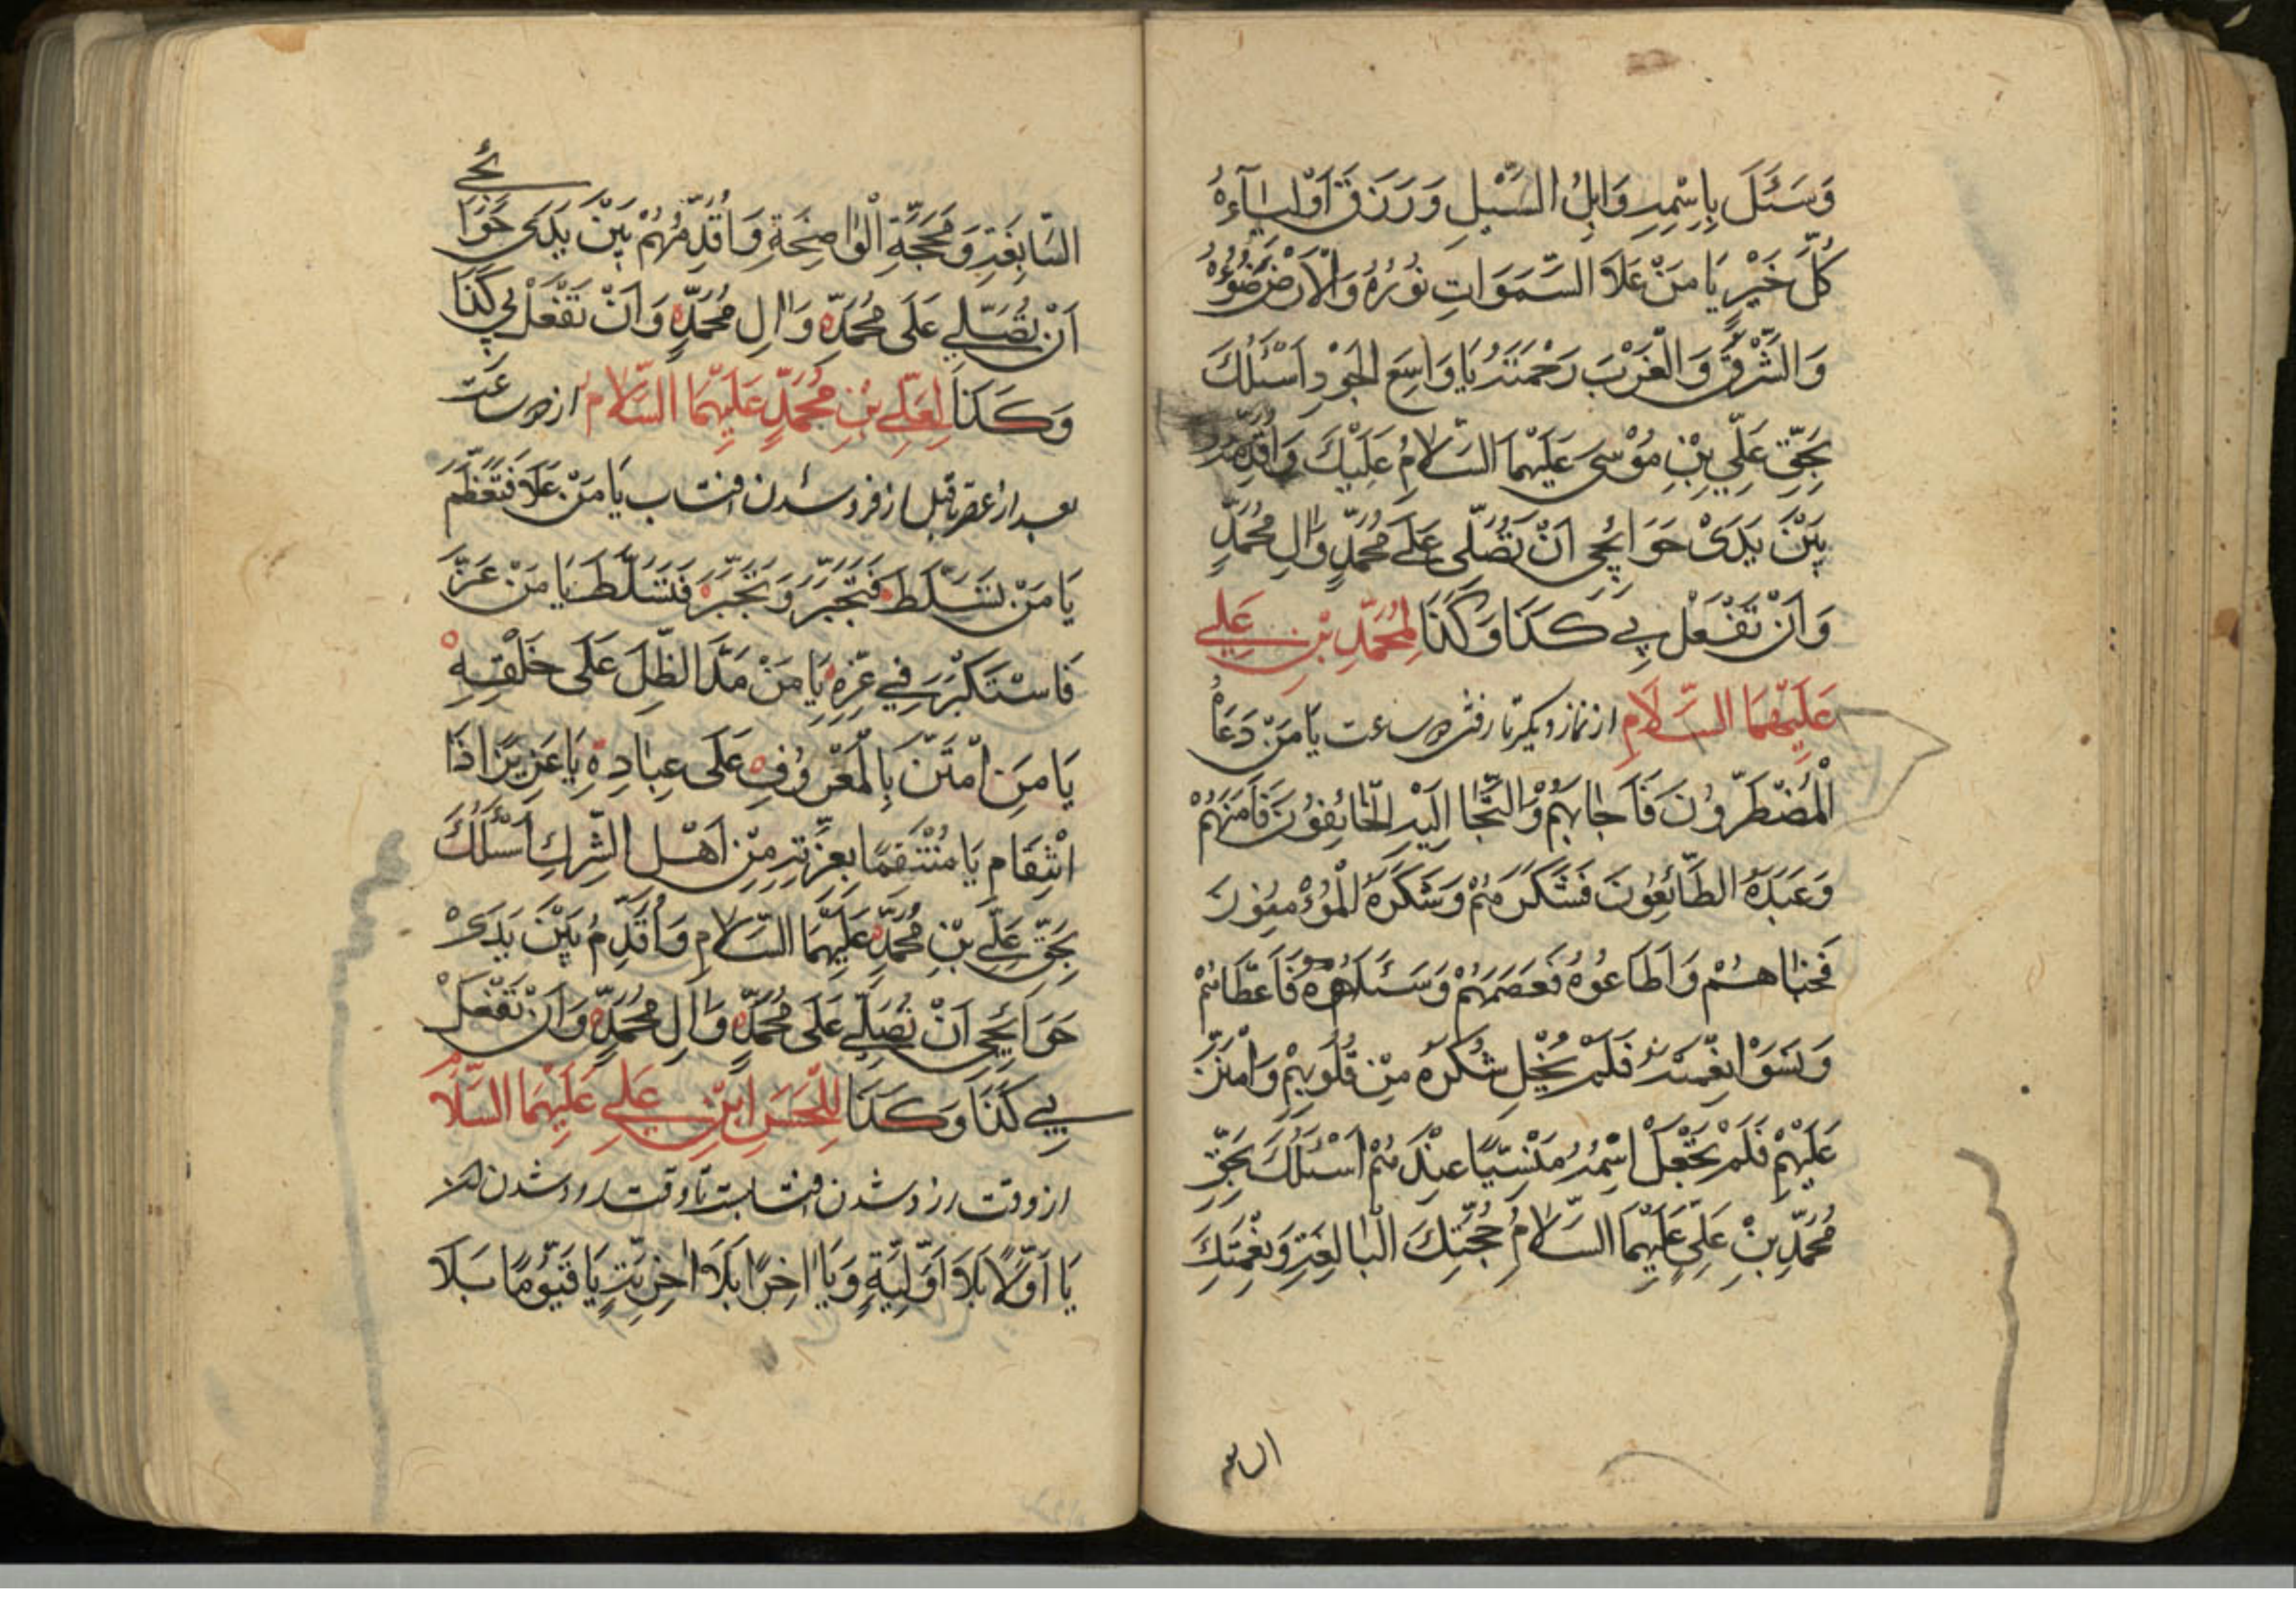 وَسَئَلَ بِاسْمِهِ وَابِلُ السَّبْلِ وَرَزَقَ اَوْلِيٰآءِهُ
كُلَّ خَيْرٍ يَا مَنْ عَلَا السَّمَوَاتِ نُورُهُ وَالْاَرْضَ ضَوْءُهُ
وَالشَّرْقَ وَالْغَرْبَ رَحْمَتُهُ يَا وَاسِعَ الْجَوْدِ اَسْئَلُكَ
بِحَقِّ عَلِيِّ بْنِ مُوْسٰى عَلَيْهِمَا السَّلَامُ عَلَيْكَ وَاُقَدِّمُهُ
بَيْنَ يَدَىْ حَوَائِجِي اَنْ تُصَلِّى عَلٰى مُحَمَّدٍ وَاٰلِ مُحَمَّدٍ
وَاَنْ تَفْعَلَ بِي كَذَا وَكَذَا لِمُحَمَّدِ بْنِ عَلِي
عَلَيْهِمَا السَّلَامِ از نماز ديكر تا رفتن دو ساعت يَا مَنْ دَعَاهُ
الْمُضْطَرُّوْنَ فَاَجَابَهُمْ وَالْتَجَا اِلَيْهِ الْخَائِفُوْنَ فَاٰمَنَهُمْ
وَعَبَدَهُ الطَّائِعُونَ فَشَكَرَهُمْ وَشَكَرَهُ الْمُؤْمِنُوْنَ
فَحَبٰاهُمْ وَاَطَاعُوْهُ فَعَصَمَهُمْ وَسَئَلُوْهُ فَاَعْطَاهُمْ
وَنَسَوْا نِعْمَتَهُ فَلَمْ يُخْلِ شُكْرَهُ مِنْ قُلُوْبِهِمْ وَامْتَنَّ
عَلَيْهِمْ فَلَمْ يَجْعَلْ اِسْمُهُ مَنْسِيًّا عِنْدَهُمْ اَسْئَلُكَ بِحَقِّ
مُحَمَّدِ بْنِ عَلِيٍّ عَلَيْهِمَا السَّلَامُ حُجَّتِكَ الْبَالِغَةِ وَنِعْمَتِكَ
السابغه
السَّابِغَةِ وَمَحَجَّةِ الْوٰاضِحَةِ وَاُقَدِّمُهُمْ بَيْنَ يَدَىَّ حَوَا
ئِجِي
اَنْ تُصَلِّيَ عَلَى مُحَمَّدٍ وَاٰلِ مُحَمَّدٍ وَاَنْ تَفْعَلَ بِي كَذَا
وَكَذَا لِعَلِيِّ بْنِ مُحَمَّدٍ عَلَيْهِمَا السَّلَامُ از دو ساعت
بعد از عصر تا قبل از فرو شدن افتاب يَا مَنْ عَلَا فَتَعَظَّمَ
يَا مَنْ تَسَلَّطَ فَتَجَبَّرَ وَتَجَبَّرَ فَتَسَلَّطَ يَا مَنْ عَزَّ
فَاسْتَكْبَرَ فِي عِزِّهِ يَا مَنْ مَدَّ الظِّلَ عَلَى خَلْقِهِ
يَا مَنِ امْتَنَّ بِالْمَعْرُوْفِ عَلَى عِبَادِهِ يَا عَزِيْزًا ذَا
انْتِقَامٍ يَا مُنْتَقِمًا بِعِزَّتِهِ مِنْ اَهْلِ الشِّرْكِ اَسْئَلُكَ
بِحَقِّ عَلِيِّ بْنِ مُحَمَّدٍ عَلَيْهِمَا السَّلَامِ وَاُقَدِّمُ بَيْنَ يَدَىْ
حَوَائِجِي اَنْ تُصَلِّيَ عَلَى مُحَمَّدٍ وَاٰلِ مُحَمَّدٍ وَاَنْ تَفْعَلَ
بِي كَذَا وَكَذَا لِلْحَسَنِ ابْنِ عَلِي عَلَيْهِمَا السَّلَامُ
از وقت زرد شدن افتابست تا وقت زرد شدن
يَا اَوَّلًا بَلَا اَوَّلِيَّةٍ وَيَا اٰخِرًا بَلَا اٰخِرِيَّتٍ يَا قَيُّوْمًا بَلَا